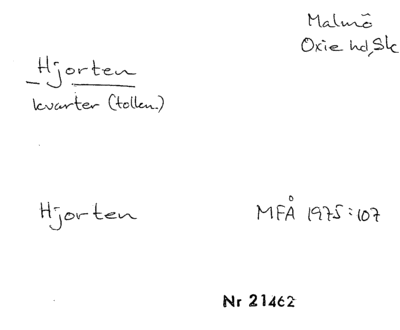 Malmö
Oxie hd, Sk
Hjorten
kvarter (tollen.)
Hjorten MFÅ 1975:107
Nr 21462